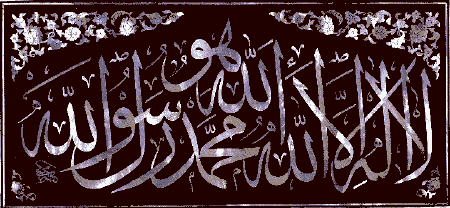 هو
الله
لا اله الا الله محمد رسول الله